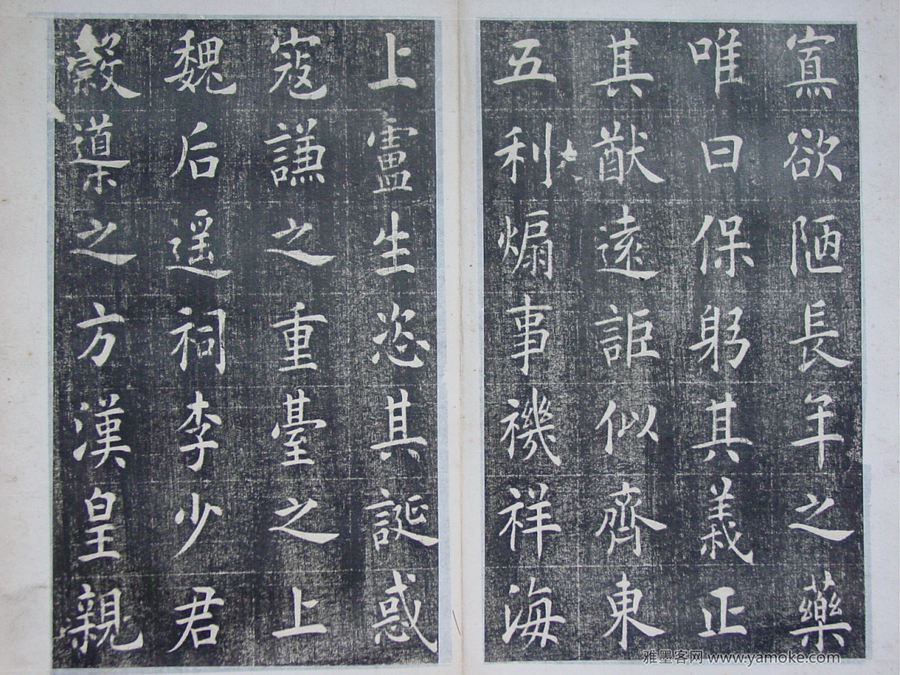 寡欲陋長年之藥
唯曰保躬其義正
其猷遠詎似齊東
五利煽事禨祥海
上盧生恣其誕惑
寇謙之重臺之上
魏后遥祠李少君
穀導之方漢皇親
雅墨客网 www.yamoke.com